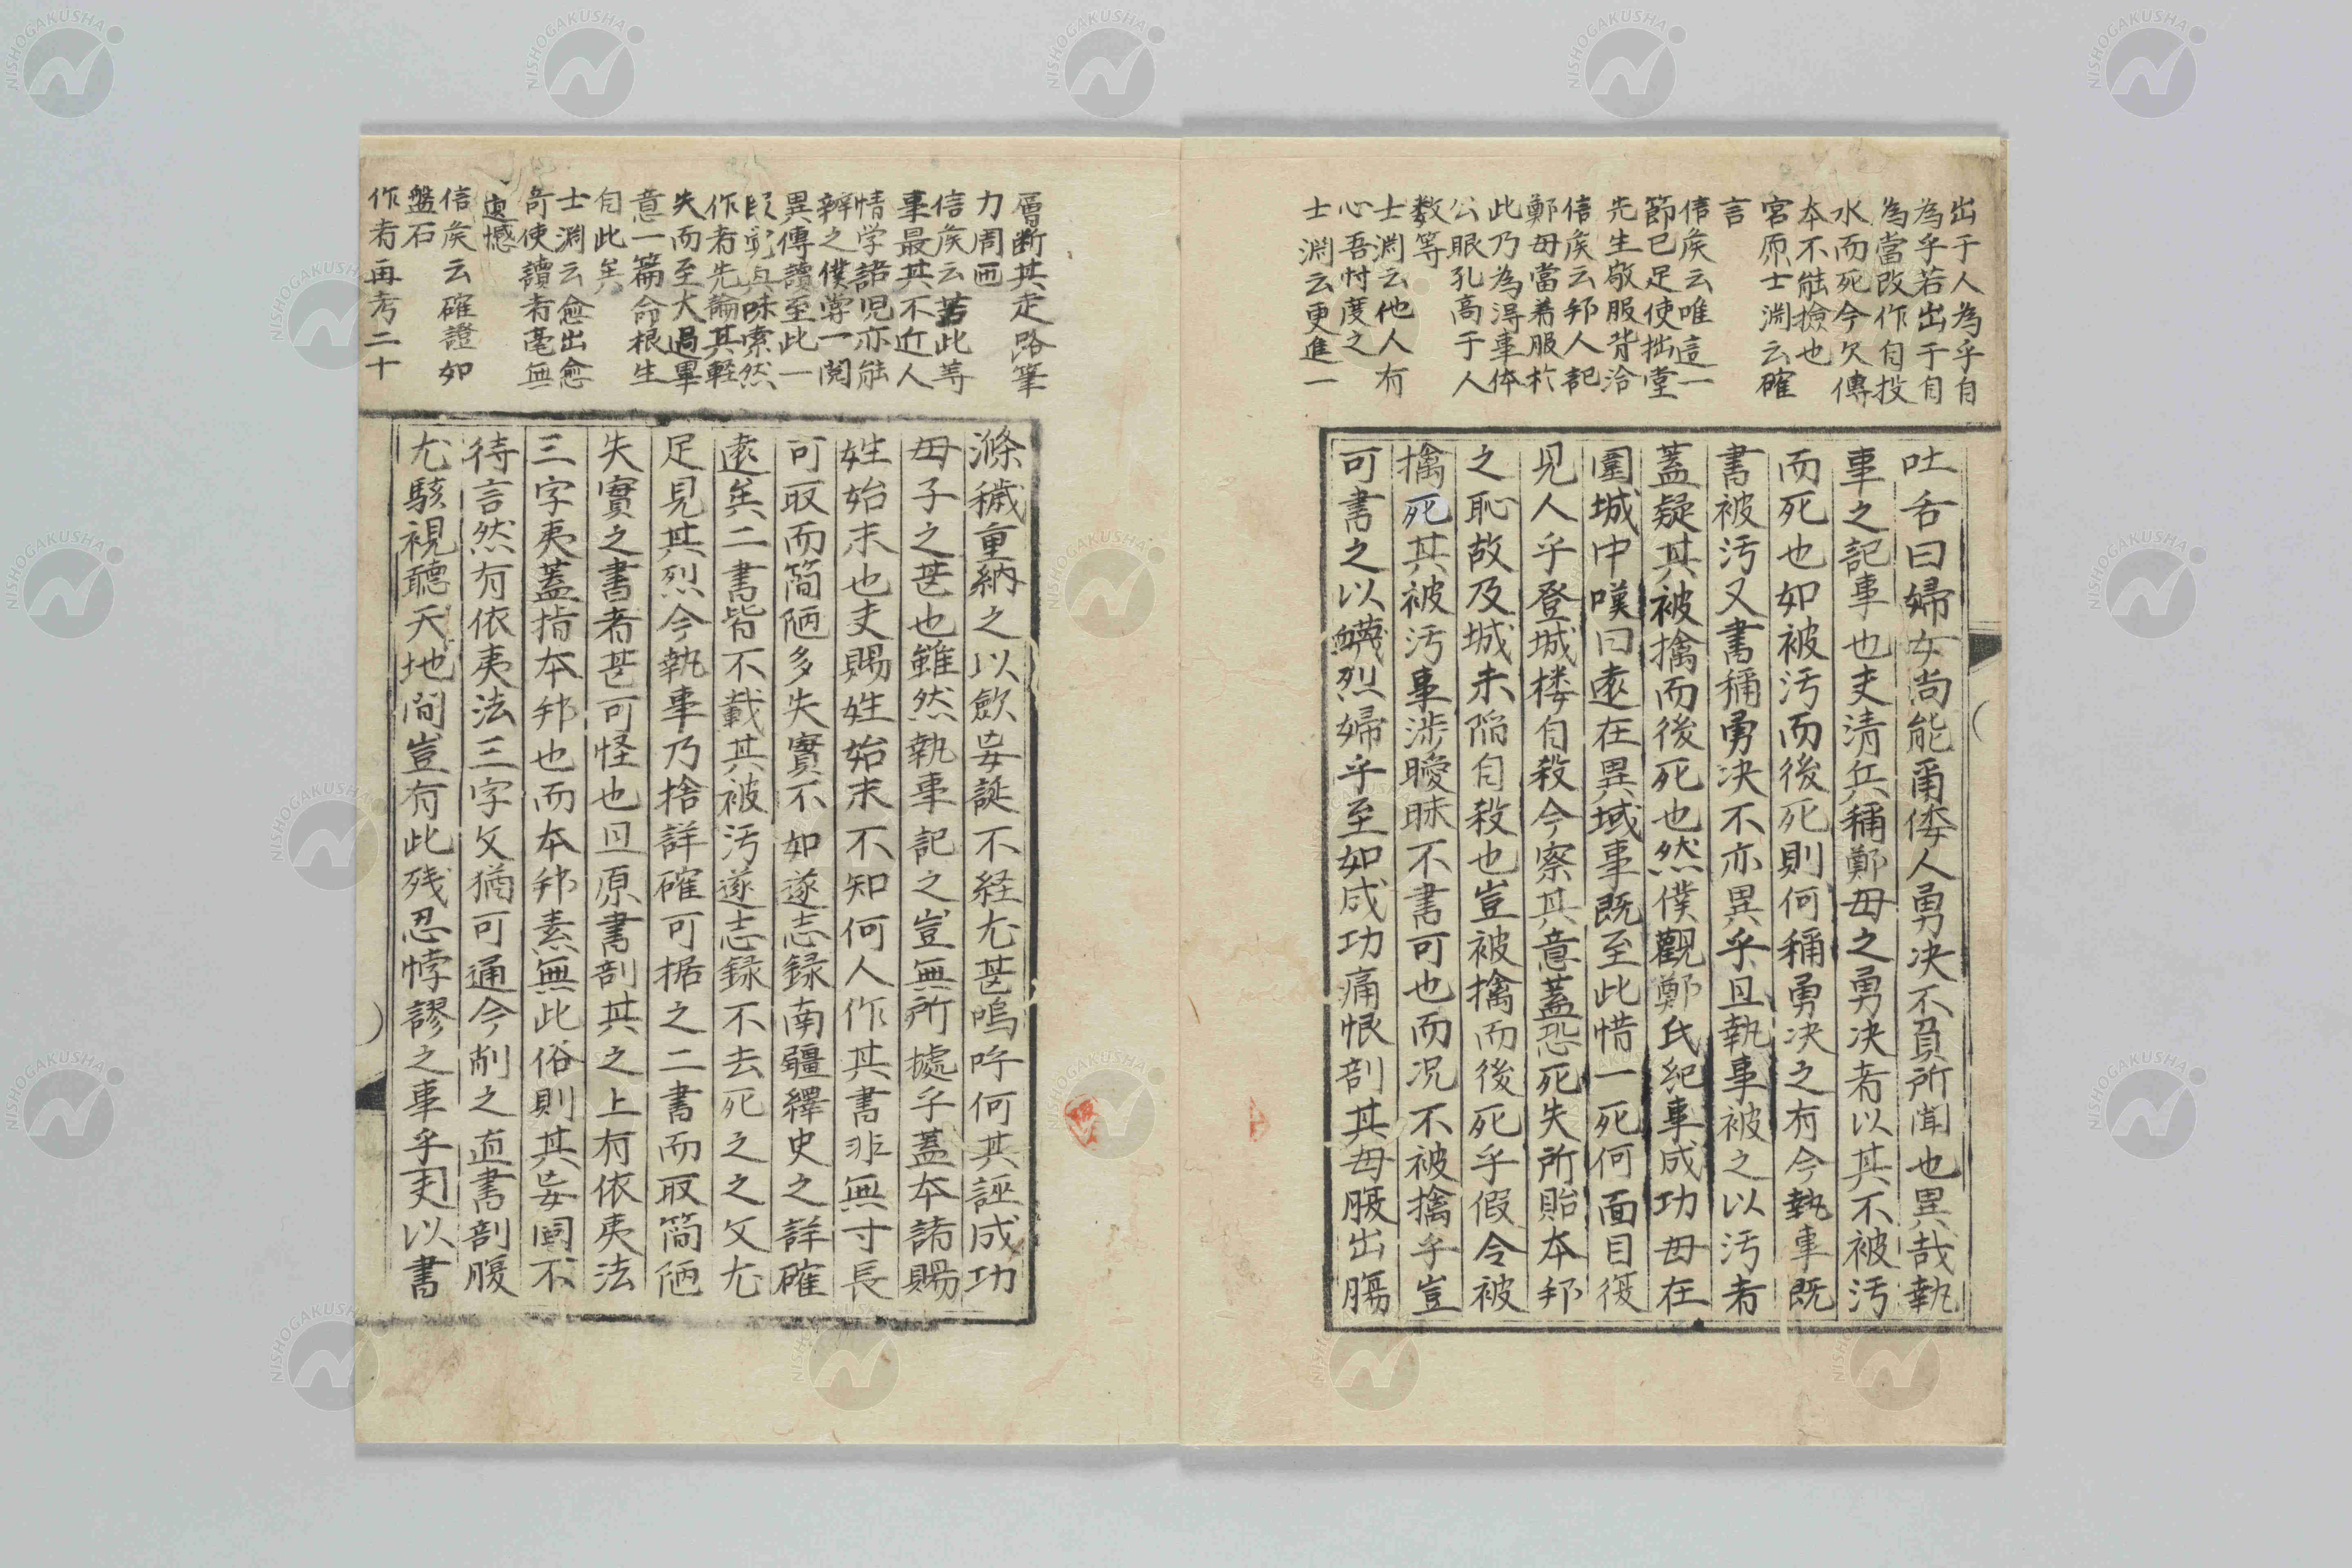 出于人為乎自
為乎若出于自
為當改作自投
水而死今欠傳
本不能撿也
宮原士淵云確
言
信矦云唯這一
節已足使拙堂
先生敬服背洽
信矦云邦人記
鄭母當着服於
此乃為淂事体
公眼孔高于人
数等
士淵云他人有
心吾忖度之
士淵云更進一
吐舌曰婦女尚能甬倭人勇决不負所聞也異哉執
事之記事也夫清兵稱鄭母之勇决者以其不被污
而死也如被污而後死則何稱勇决之有今執事既
書被污又書稱勇决不亦異乎且執事被之以污者
蓋疑其被擒而後死也然僕觀鄭氏紀事成功母在
圍城中嘆曰遠在異域事既至此惜一死何面目復
見人乎登城楼自殺今察其意蓋恐死失所貽本邦
之恥故及城未陷自殺也豈被擒而後死乎假令被
擒死其被污事涉曖昧不書可也而况不被擒乎豈
可書之以衊烈婦乎至如成功痛恨剖其母腹出膓
層断其走路筆
力周匝
信矦云若此等
事最其不近人
情学語児亦能
辨之僕嘗一閲
異傳讀至此一
段覚興味索然
作者先論其軽
失而至大過畢
意一篇命根生
自此矣
士淵云愈出愈
奇使讀者毫無
遺憾
信矦云確證如
盤石
作者再考二十
滌穢重納之以歛妄誕不経尤甚嗚呼何其誣成功
母子之甚也雖然執事記之豈無所據乎蓋本諸賜
姓始末也夫賜姓始末不知何人作其書非無寸長
可取而简陋多失實不如遂志録南疆繹史之詳確
遠矣二書皆不載其被污遂志録不去死之之文尤
足見其烈今執事乃捨詳確可据之二書而取简陋
失實之書者甚可怪也且原書剖其之上有依夷法
三字夷蓋指本邦也而本邦素無此俗則其妄固不
待言然有依夷法三字文猶可通今削之直書剖腹
尤駭視聽天地间豈有此残忍悖謬之事乎夫以書